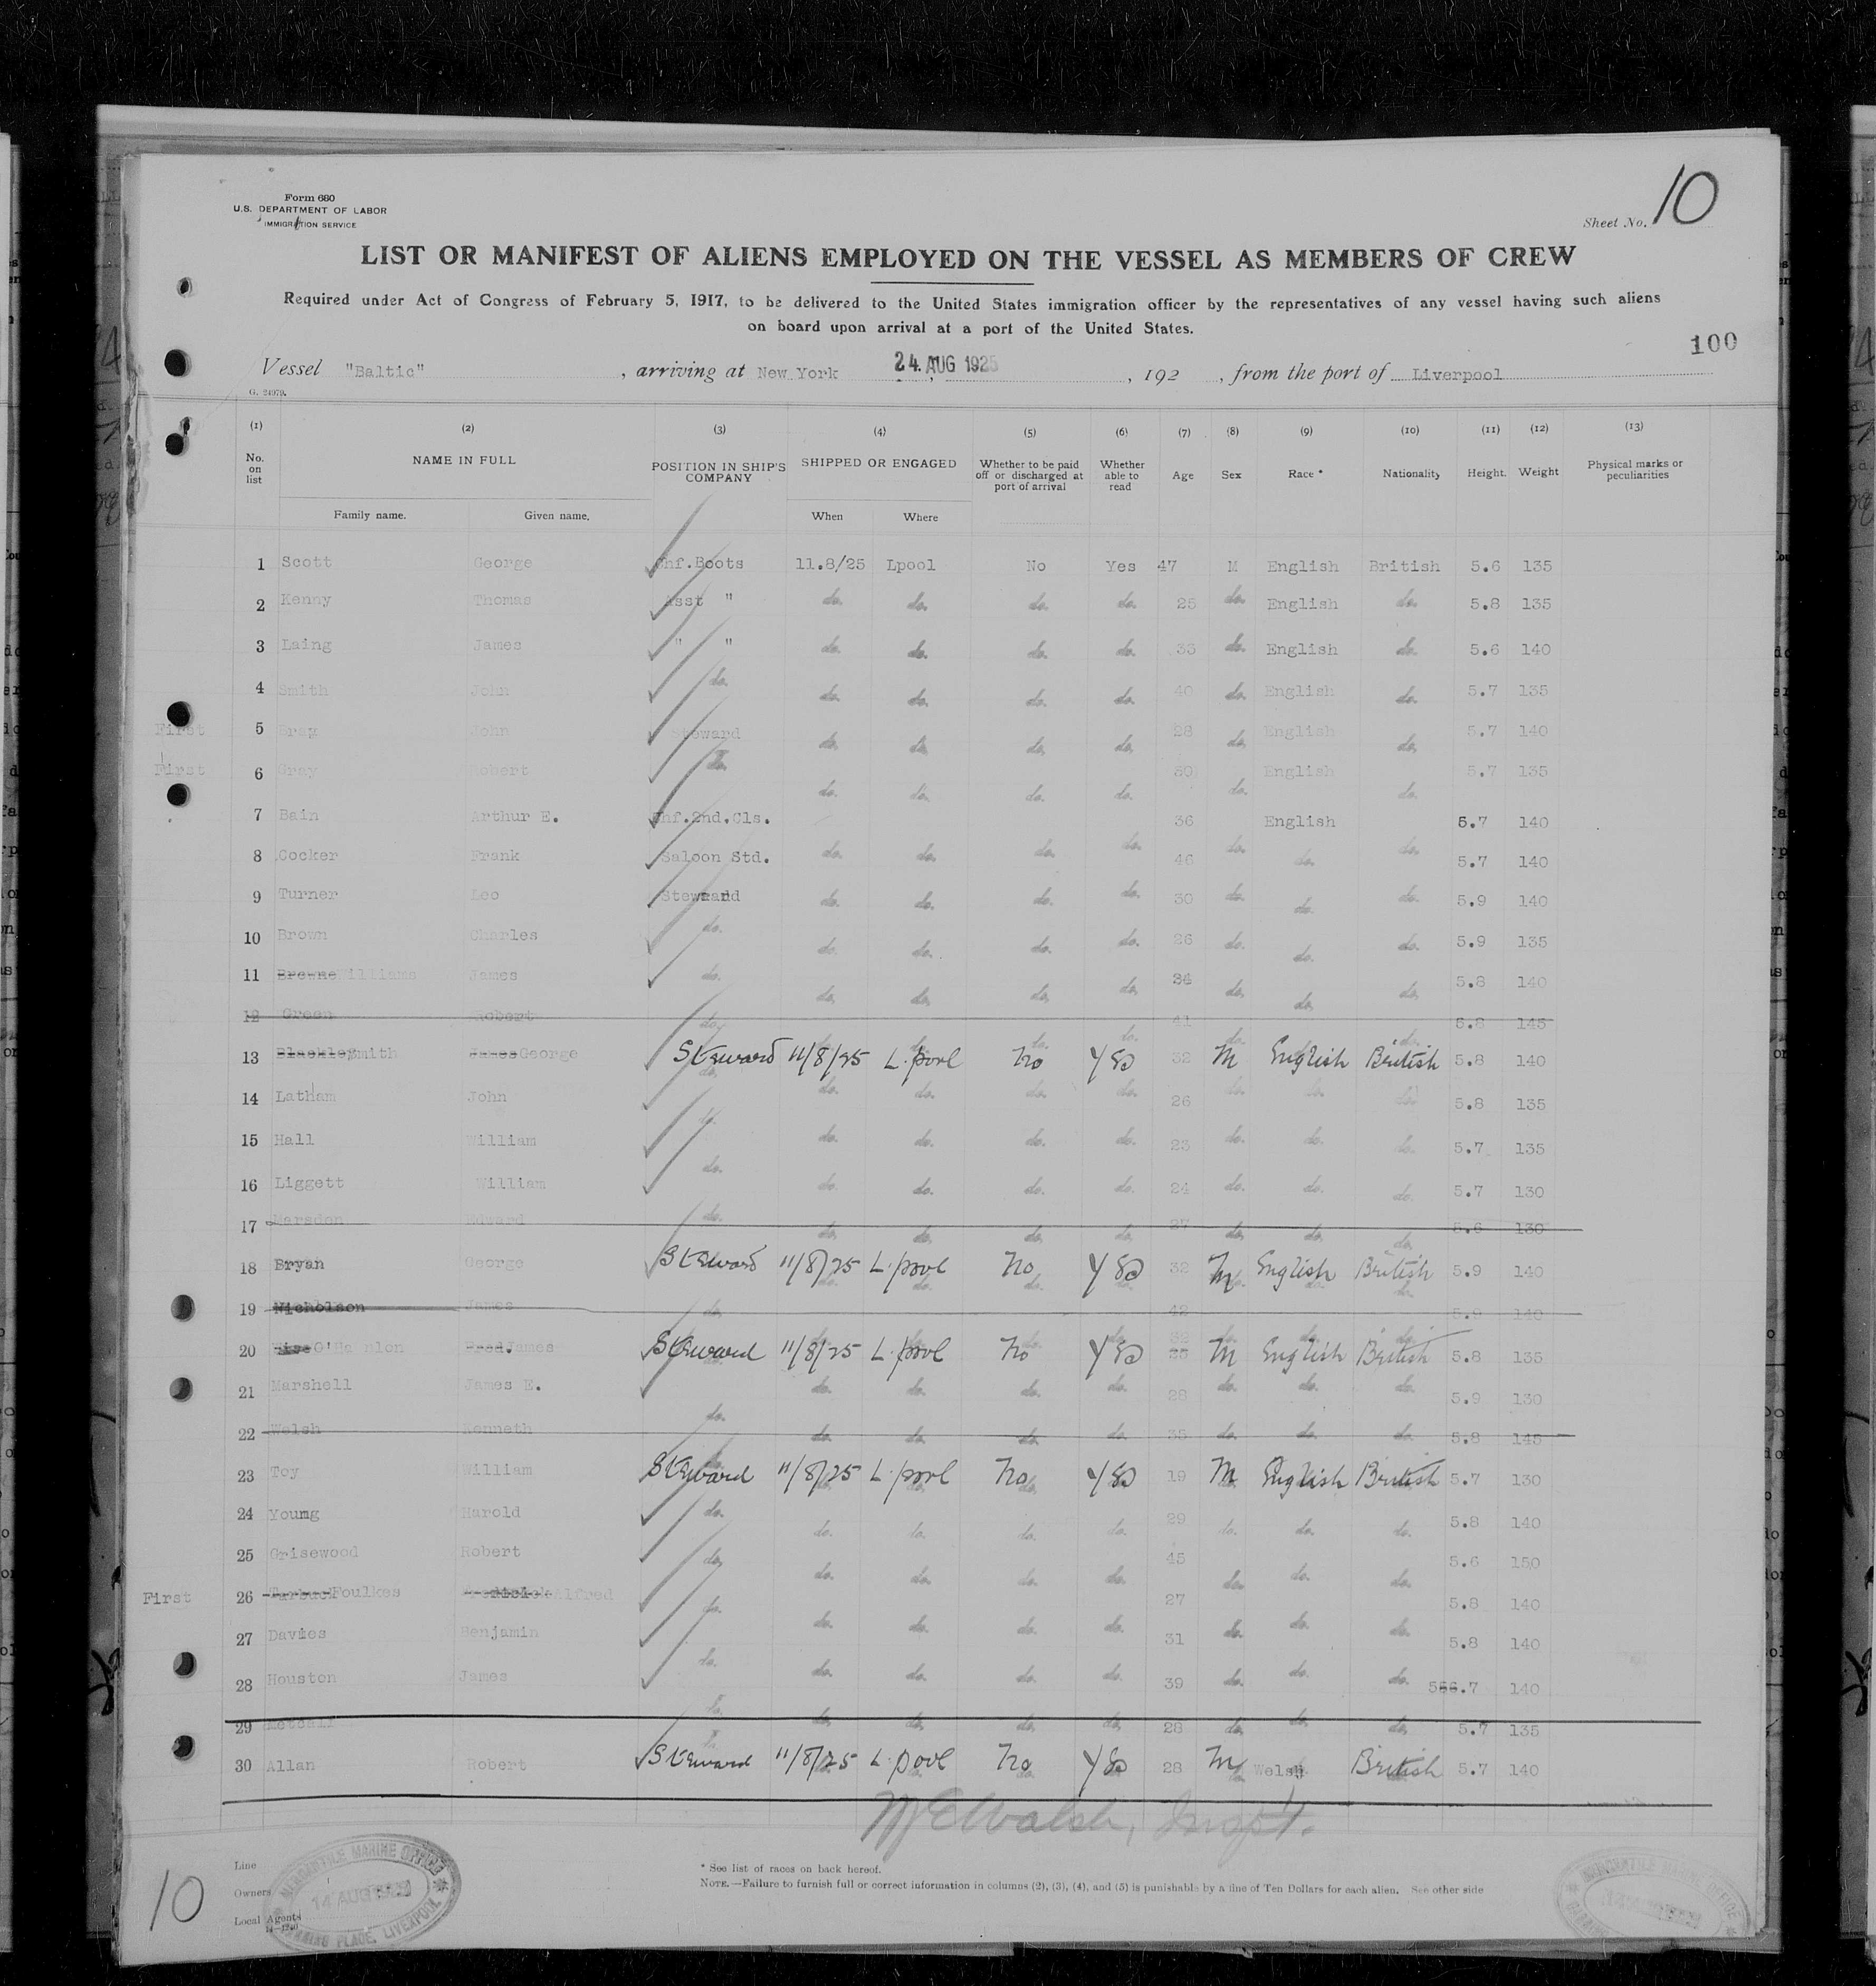 Form 680
U.S. DEPARTMENT OF LABOR
IMMIGRATION SERVICE
Sheet No. 10
LIST OR MANIFEST OF ALIENS EMPLOYED ON THE VESSEL AS MEMBERS OF CREW
Required under Act of Congress of February 5, 1917, to be delivered to the United States immigration officer by the representatives of any vessel having such aliens
on board upon arrival at a port of the United States.
100
Vessel "Baltic", arriving at New York 24 AUG 1925, 192 , from the port of Liverpool
G. 24979.
(1) (2) (3) (4) (5) (6) (7) (8) (9) (10) (11) (12) (13)
No. on list NAME IN FULL POSITION IN SHIP'S COMPANY SHIPPED OR ENGAGED Whether to be paid off or discharged at port of arrival Whether able to read Age Sex Race * Nationality Height. Weight Physical marks or peculiarities
Family name. Given name. When Where
1 Scott George Chf.Boots 11.8/25 Lpool No Yes 47 M English British 5.6 135
2 Kenny Thomas Asst " do. do. do. do. 25 do. English do. 5.8 135
3 Laing James " " do. do. do. do. do. English do. 5.6 140
4 Smith John do. do. do. do. do. 40 do. English do. 5.7 135
First 5 John Steward do. do. do. do. 28 do. English do. 5.7 140
First 6 Gray Robert do. do. do. do. do. 30 do. English do. 5.7 135
7 Bain Arthur E. Chf.2nd.Cls. 36 English 5.7 140
8 Cocker Frank Saloon Std. do. do. do. do. 46 do. do. do. 5.7 140
9 Turner Leo Steward do. do. do. do. 30 do. do. do. 5.9 140
10 Brown Charles do. do. do. do. do. 26 do. do. do. 5.9 135
11 Browne Williams James do. do. do. do. do. 34 do. do. do. 5.8 140
12 Green Robert do. do. do. do. do. 41 do. do. 5.8 145
13 Smith James George Steward 11/8/25 L.pool No Yes 32 M English British 5.8 140
14 Latham John do. do. do. do. do. 26 do. do. do. 5.8 135
15 Hall William do. do. do. do. do. 23 do. do. do. 5.7 135
16 Liggett William do. do. do. do. do. 24 do. do. do. 5.7 130
17 Marsden Edward do. do. do. do. do. 27 do. do. do. 5.6 130
18 Bryan George Steward 11/8/25 L.pool No Yes 32 M English British 5.9 140
19 Nicholson James do. 42 5.9 140
20 O'Hanlon Fred. James Steward 11/8/25 L.pool No Yes M English British 5.8 135
21 Marshell James E. do. do. do. do. 28 do. do. do. 5.9 130
22 Welsh Kenneth do. do. do. do. do. 35 do. do. do. 5.8 145
23 Toy William Steward 11/8/25 L.pool No Yes 19 M English British 5.7 130
24 Young Harold do. do. do. do. do. 29 do. do. do. 5.8 140
25 Grisewood Robert do. do. do. do. do. 45 do. do. do. 5.6 150
First 26 Tarbuck Foulkes Alfred do. do. do. do. do. 27 do. do. do. 5.8 140
27 Davies Benjamin do. do. do. do. 31 do. do. do. 5.8 140
28 Houston James do. do. do. do. do. 39 do. do. do. 140
29 Metcalf do. do. do. do. do. 28 do. do. do. 5.7 135
30 Allan Robert Steward 11/8/25 L.pool No Yes 28 M Welsh British 5.7 140
M E Walsh, Insp't.
* See list of races on back hereof.
NOTE.—Failure to furnish full or correct information in columns (2), (3), (4), and (5) is punishable by a fine of Ten Dollars for each alien. See other side
Line
Owners
Local Agents
10
MERCANTILE MARINE OFFICE
14 AUG
CANNING PLACE, LIVERPOOL